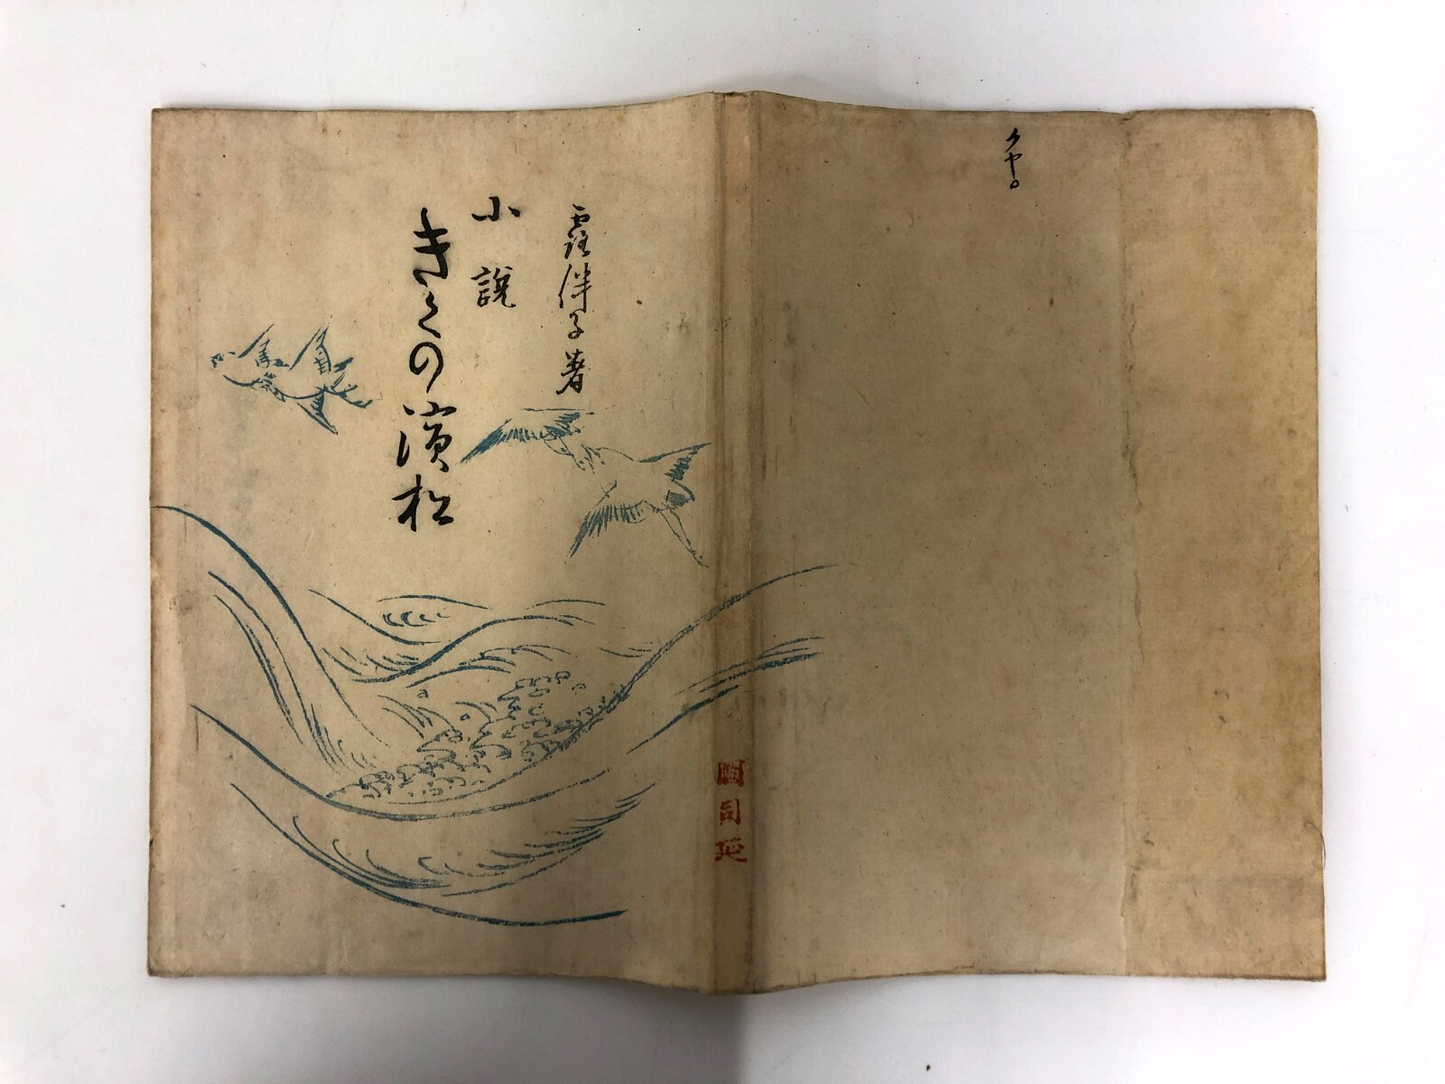 露伴子著
小説
きくの濱松